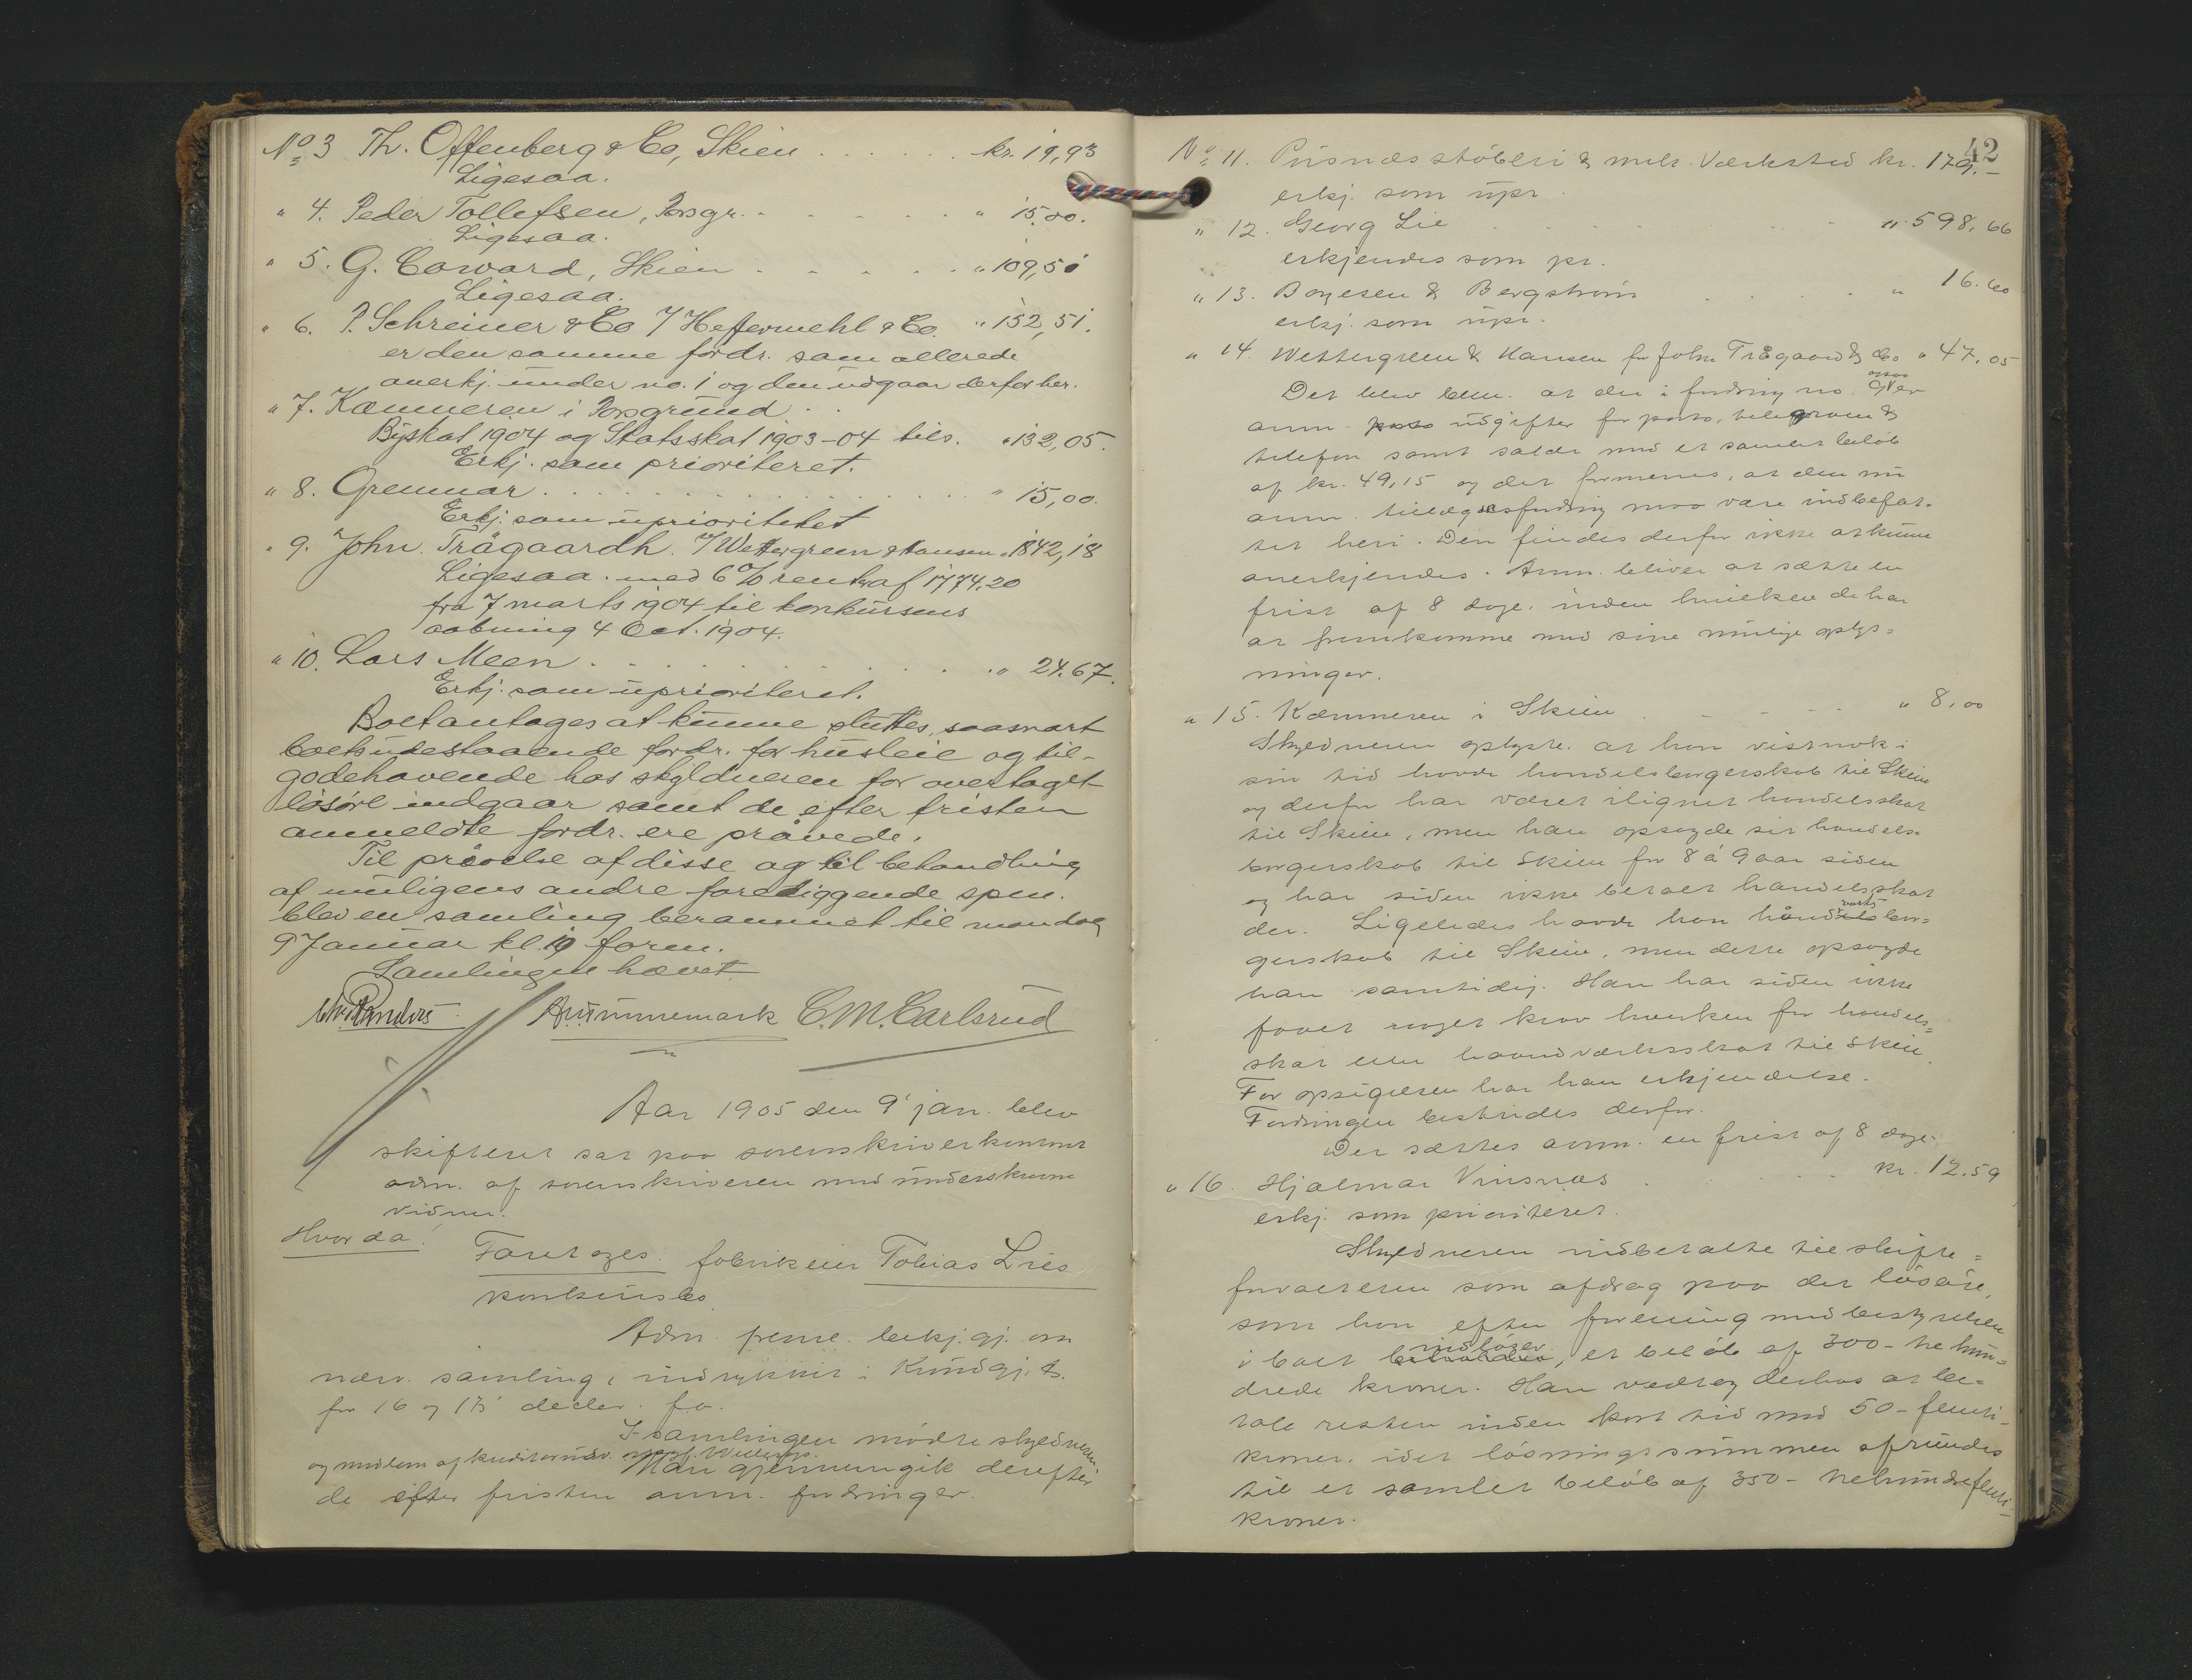 No 3 Th. Offenberg & Co, Skien . . . . . . kr. 19,93
Ligesaa.
" 4. Peder Tollefsen, Porsgr. . . . . . . " 15.00.
Ligesaa.
" 5. G. Coward, Skien . . . . . " 109,50
Ligesaa.
" 6. P. Schreiner & Co / Hefermehl & Co. " 152,51.
er den samme fordr. som allerede
anerkj. under no. 1 og den udgaar derfor her.
" 7. Kæmneren i Porsgrund . .
Byskat 1904 og Statsskat 1903-04 tils. " 132,05.
Erkj. som prioriteret.
" 8. Grenmar . . . . . . . . " 15,00.
Erkj. som uprioritetet
" 9. John. Trägaardh. / Wettergreen & Hansen " 1842,18
Ligesaa. med 6% rente af 1774.20
fra 7 marts 1904 til konkursens
aabning 4 Oct. 1904.
" 10. Lars Meen . . . . . . . . " 24.67.
Erkj. som uprioriteret.
Boet antages at kunne sluttes, saasnart
boets udestaaende fordr. for husleie og til-
godehavende hos skyldneren for overtaget
løsøre indgaar samt de efter fristen
anmeldte fordr. ere prøvede.
Til prøvelse af disse og til behandling
af muligens andre foreliggende spm.
blev en samling berammet til mandag
9 Januar kl. 10 form.
Samlingen hævet
C. M. Carlsrud
Aar 1905 den 9' jan. blev
skifteret sat paa sorenskriverkontoret
adm. af sorenskriveren med underskrevne
vidner.
Hvor da:
Foretoges: fabrikeier Tobias Lies
konkursbo.
Adm. freml. bekj.gj. om
nærv. samling, indrykket i Kundgj. t.
for 16 og 17' decbr. f.a.
I samlingen mødte skyldneren
og medlem af kreditorudv.
Man gjennemgik derefter
de efter fristen anm. fordringer.
42
No 11. Pusnæs støberi & mek. Værksted kr. 179.-
erkj. som upr.
" 12. Georg Lie . . . . . . " 598.66
erkjendes som pr.
" 13. Boyesen & Bergstrøm . . . . " 16.60
erkj. som upr.
" 14. Wettergreen & Hansen for John Trägaardh & Co " 47.05
Det blev bem. at der i fordring no. 9 ogsaa er
anm. udgifter for porto, telegram &
telefon samt saldo med et samlet beløb
af kr. 49,15 og det formenes, at den nu
anm. tillægsfordring maa være indbefat-
tet heri. Den findes derfor ikke at kunne
anerkjendes. Anm. bliver at sætte en
frist af 8 dage, inden hvilken de har
at fremkomme med sine mulige oplys-
ninger.
" 15. Kæmneren i Skien . . . . . " 8,00
Skyldneren oplyste, at han vistnok i
sin tid havde handelsborgerskab til Skien
og derfor har været ilignet handelsskat
til Skien, men han opsagde sit handels-
borgerskab til Skien for 8 á 9 aar siden
og har siden ikke betalt handelsskat
der. Ligeledes havde han håndværksbor-
gerskab til Skien, men dette opsagde
han samtidig. Han har siden ikke
faaet noget krav hverken for handels-
skat eller haandværksskat til Skien.
For opsigelsen har han erkjendelse.
Fordringen bestrides derfor.
Der sættes anm. en frist af 8 dage.
" 16. Hjalmar Vrisnæs . . . . kr. 12.59
erkj. som prioriteret.
Skyldneren indbetalte til skifte-
forvalteren som afdrag paa det løsøre,
som han efter forening med bestyrelsen
i boet indløser, et beløb af 300 - tre hun-
drede kroner. Han vedtog derhos at be-
tale resten inden kort tid med 50 - femti-
kroner, idet løsningssummen afrundes
til et samlet beløb af 350 - trehundrefemti-
kroner.